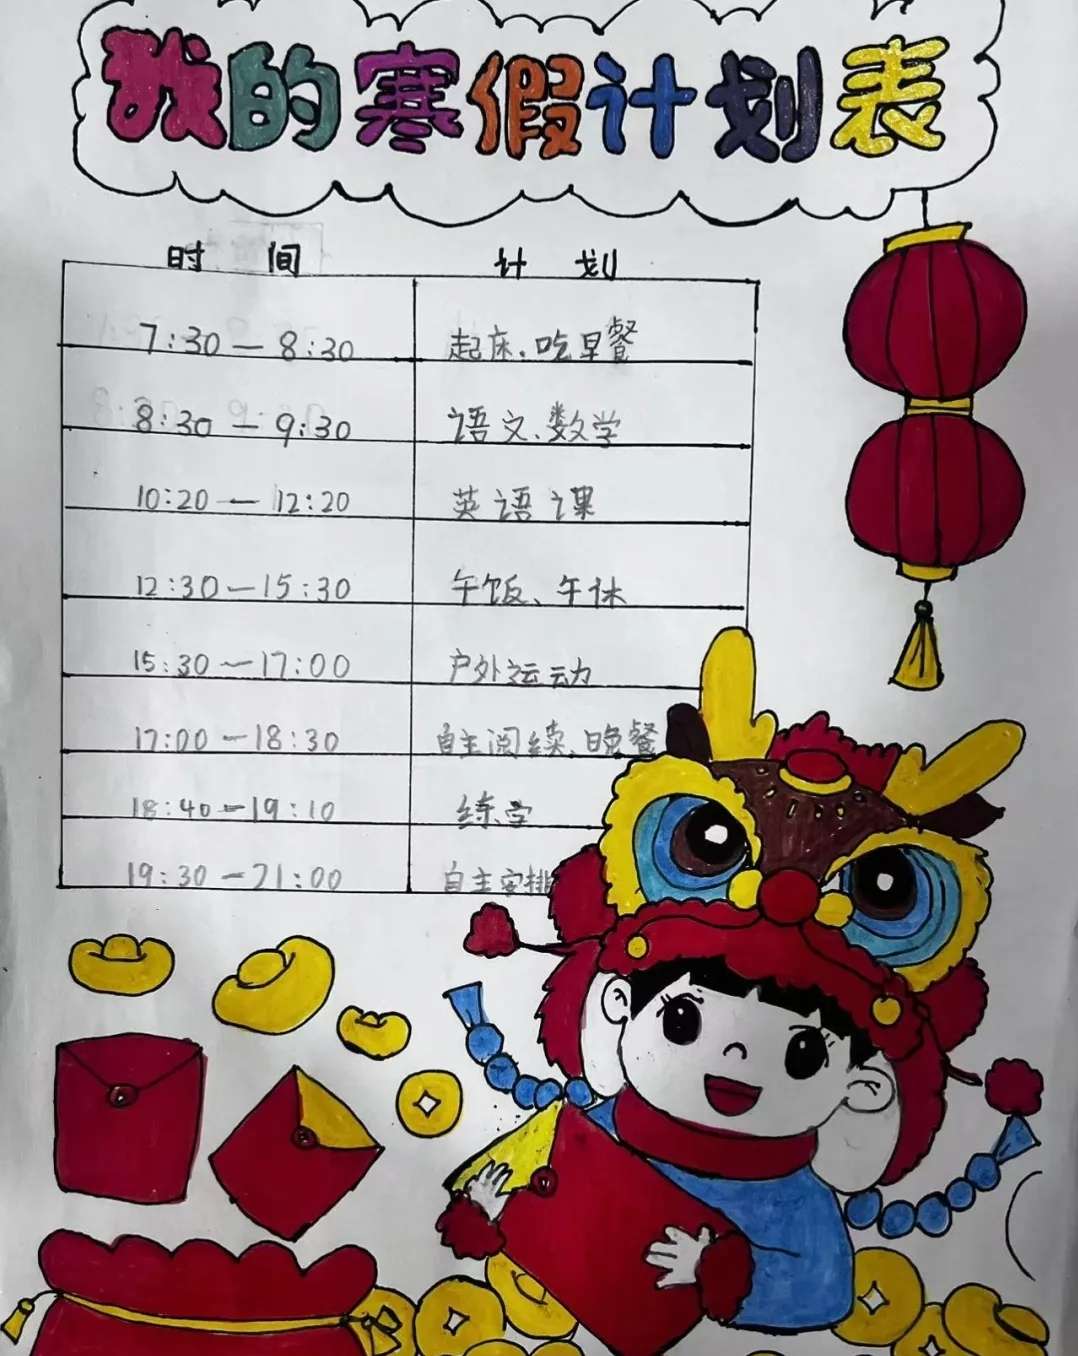 我的寒假计划表
时 间 计 划
7:30—8:30 起床、吃早餐
8:30—9:30 语文、数学
10:20—12:20 英语课
12:30—15:30 午饭、午休
15:30—17:00 户外运动
17:00—18:30 自主阅读、晚餐
18:40—19:10 练字
19:30—21:00 自主安排